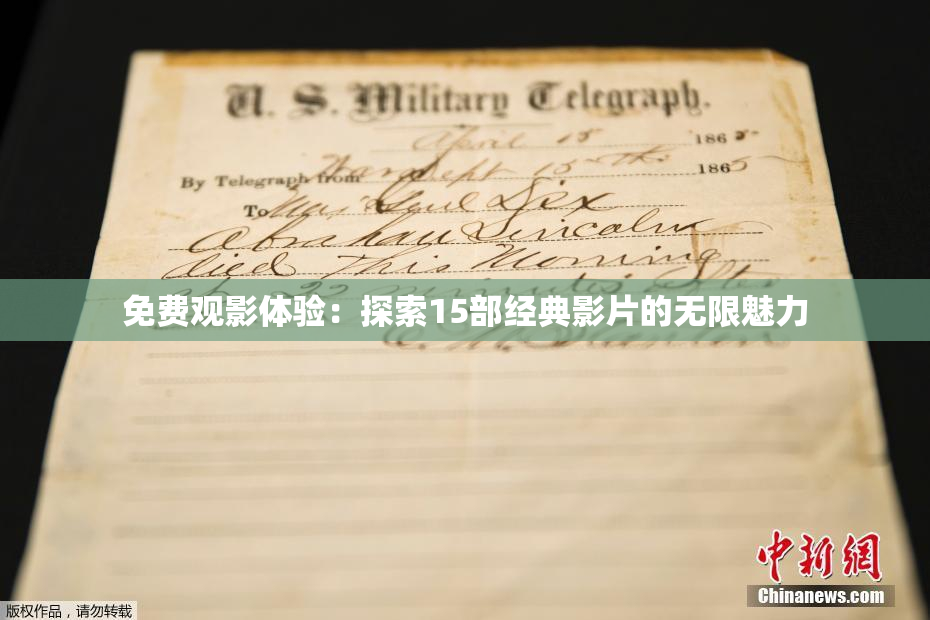 U. S. Military Telegraph.
April 15 1865
By Telegraph from War Dept 15th 1865
To Maj Genl Dix
Abraham Lincoln
died This Morning
at 22 minutes after
免费观影体验：探索15部经典影片的无限魅力
中新网
Chinanews.com
版权作品，请勿转载